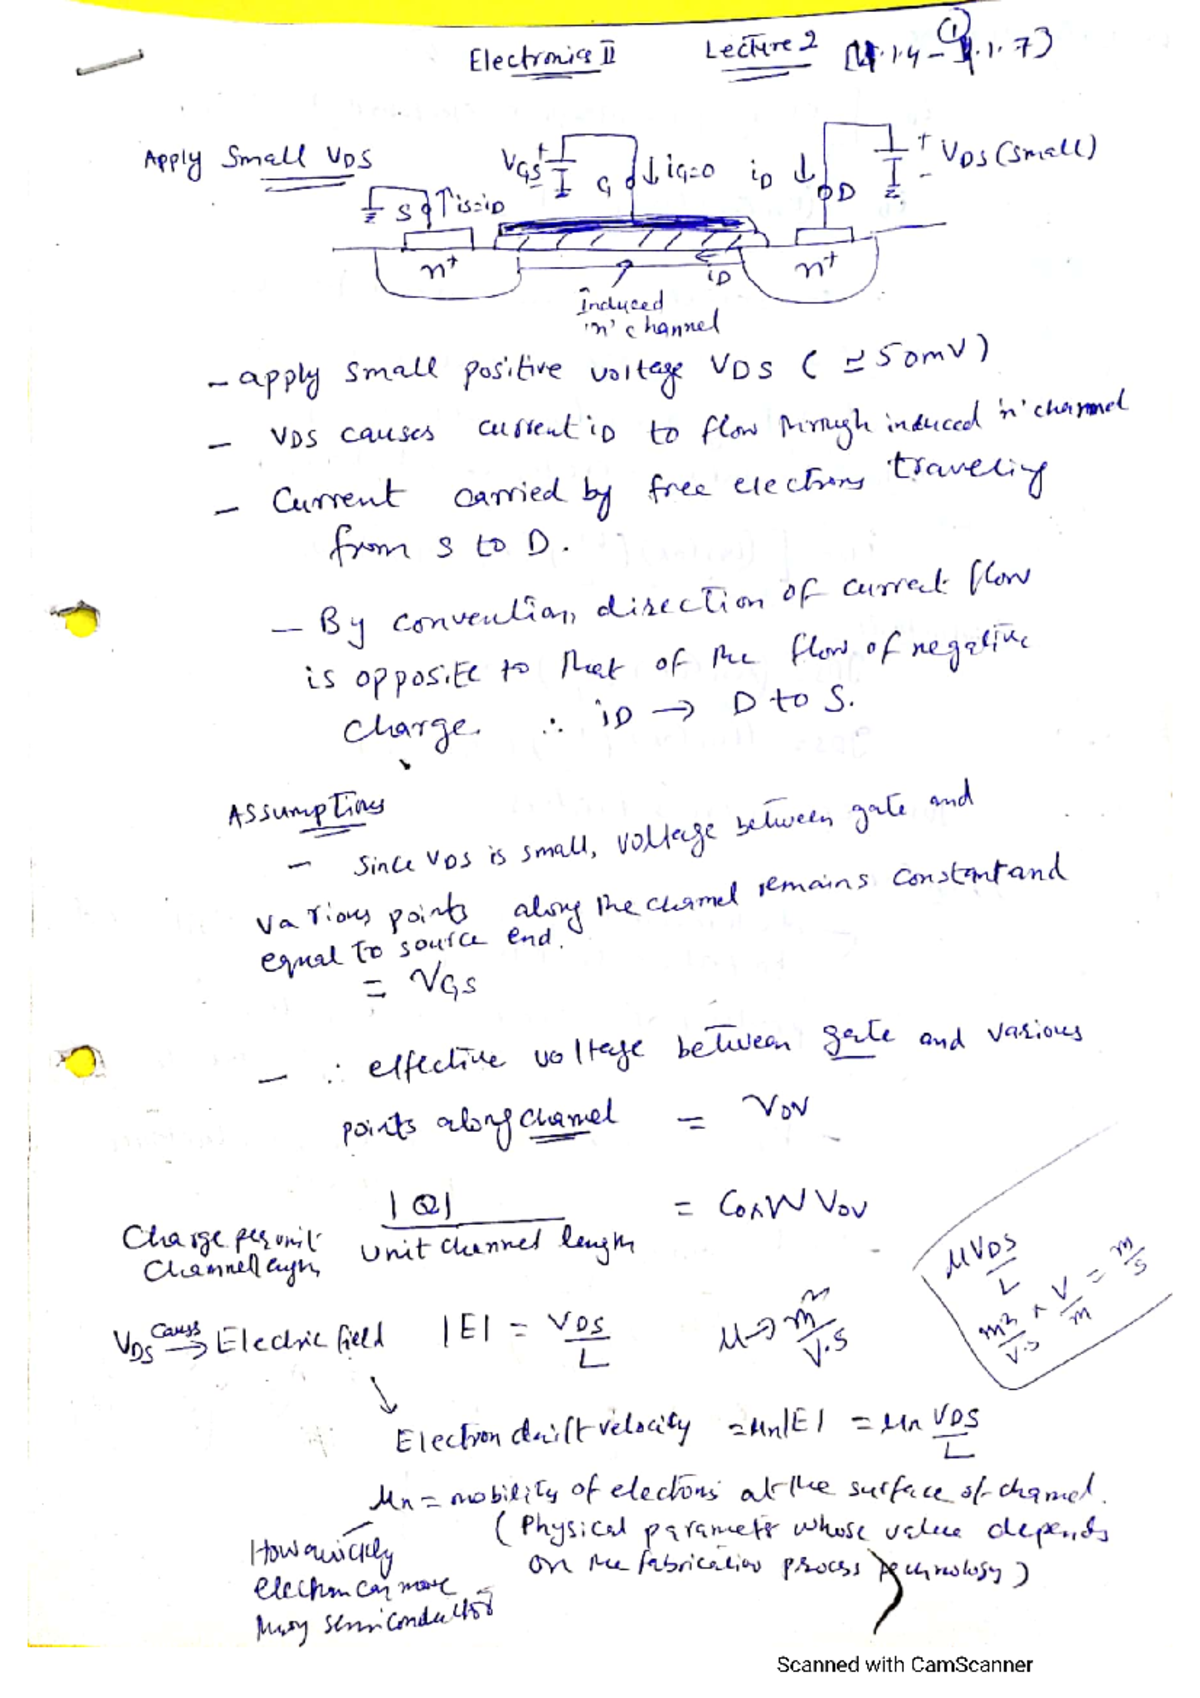 Electronics II Lecture 2
1
Apply Small VDS
VGS + G ↓ iG=0 iD ↓ D + - VDS (small)
S ↑ is=iD
n+ iD n+
Induced
'n' channel
- apply small positive voltage VDS ( ≃ 50mV )
- VDS causes current iD to flow through induced 'n' channel
- Current carried by free electrons traveling
from S to D.
- By convention, direction of current flow
is opposite to that of the flow of negative
charge. ∴ iD → D to S.
Assumptions
- Since VDS is small, voltage between gate and
various points along the channel remains constant and
equal to source end.
= VGS
- ∴ effective voltage between gate and various
points along channel = VOV
Charge per unit Channel length |Q| / Unit channel length = Cox W VOV
μVDS / L
m² / V.s × V / m = m / s
VDS causes → Electric field |E| = VDS / L μ → m² / V.s
↓
Electron drift velocity = μn|E| = μn VDS / L
μn = mobility of electons at the surface of channel.
( Physical parameter whose value depends
on the fabrication process technology )
How quickly
electron can move
semiconductor
Scanned with CamScanner